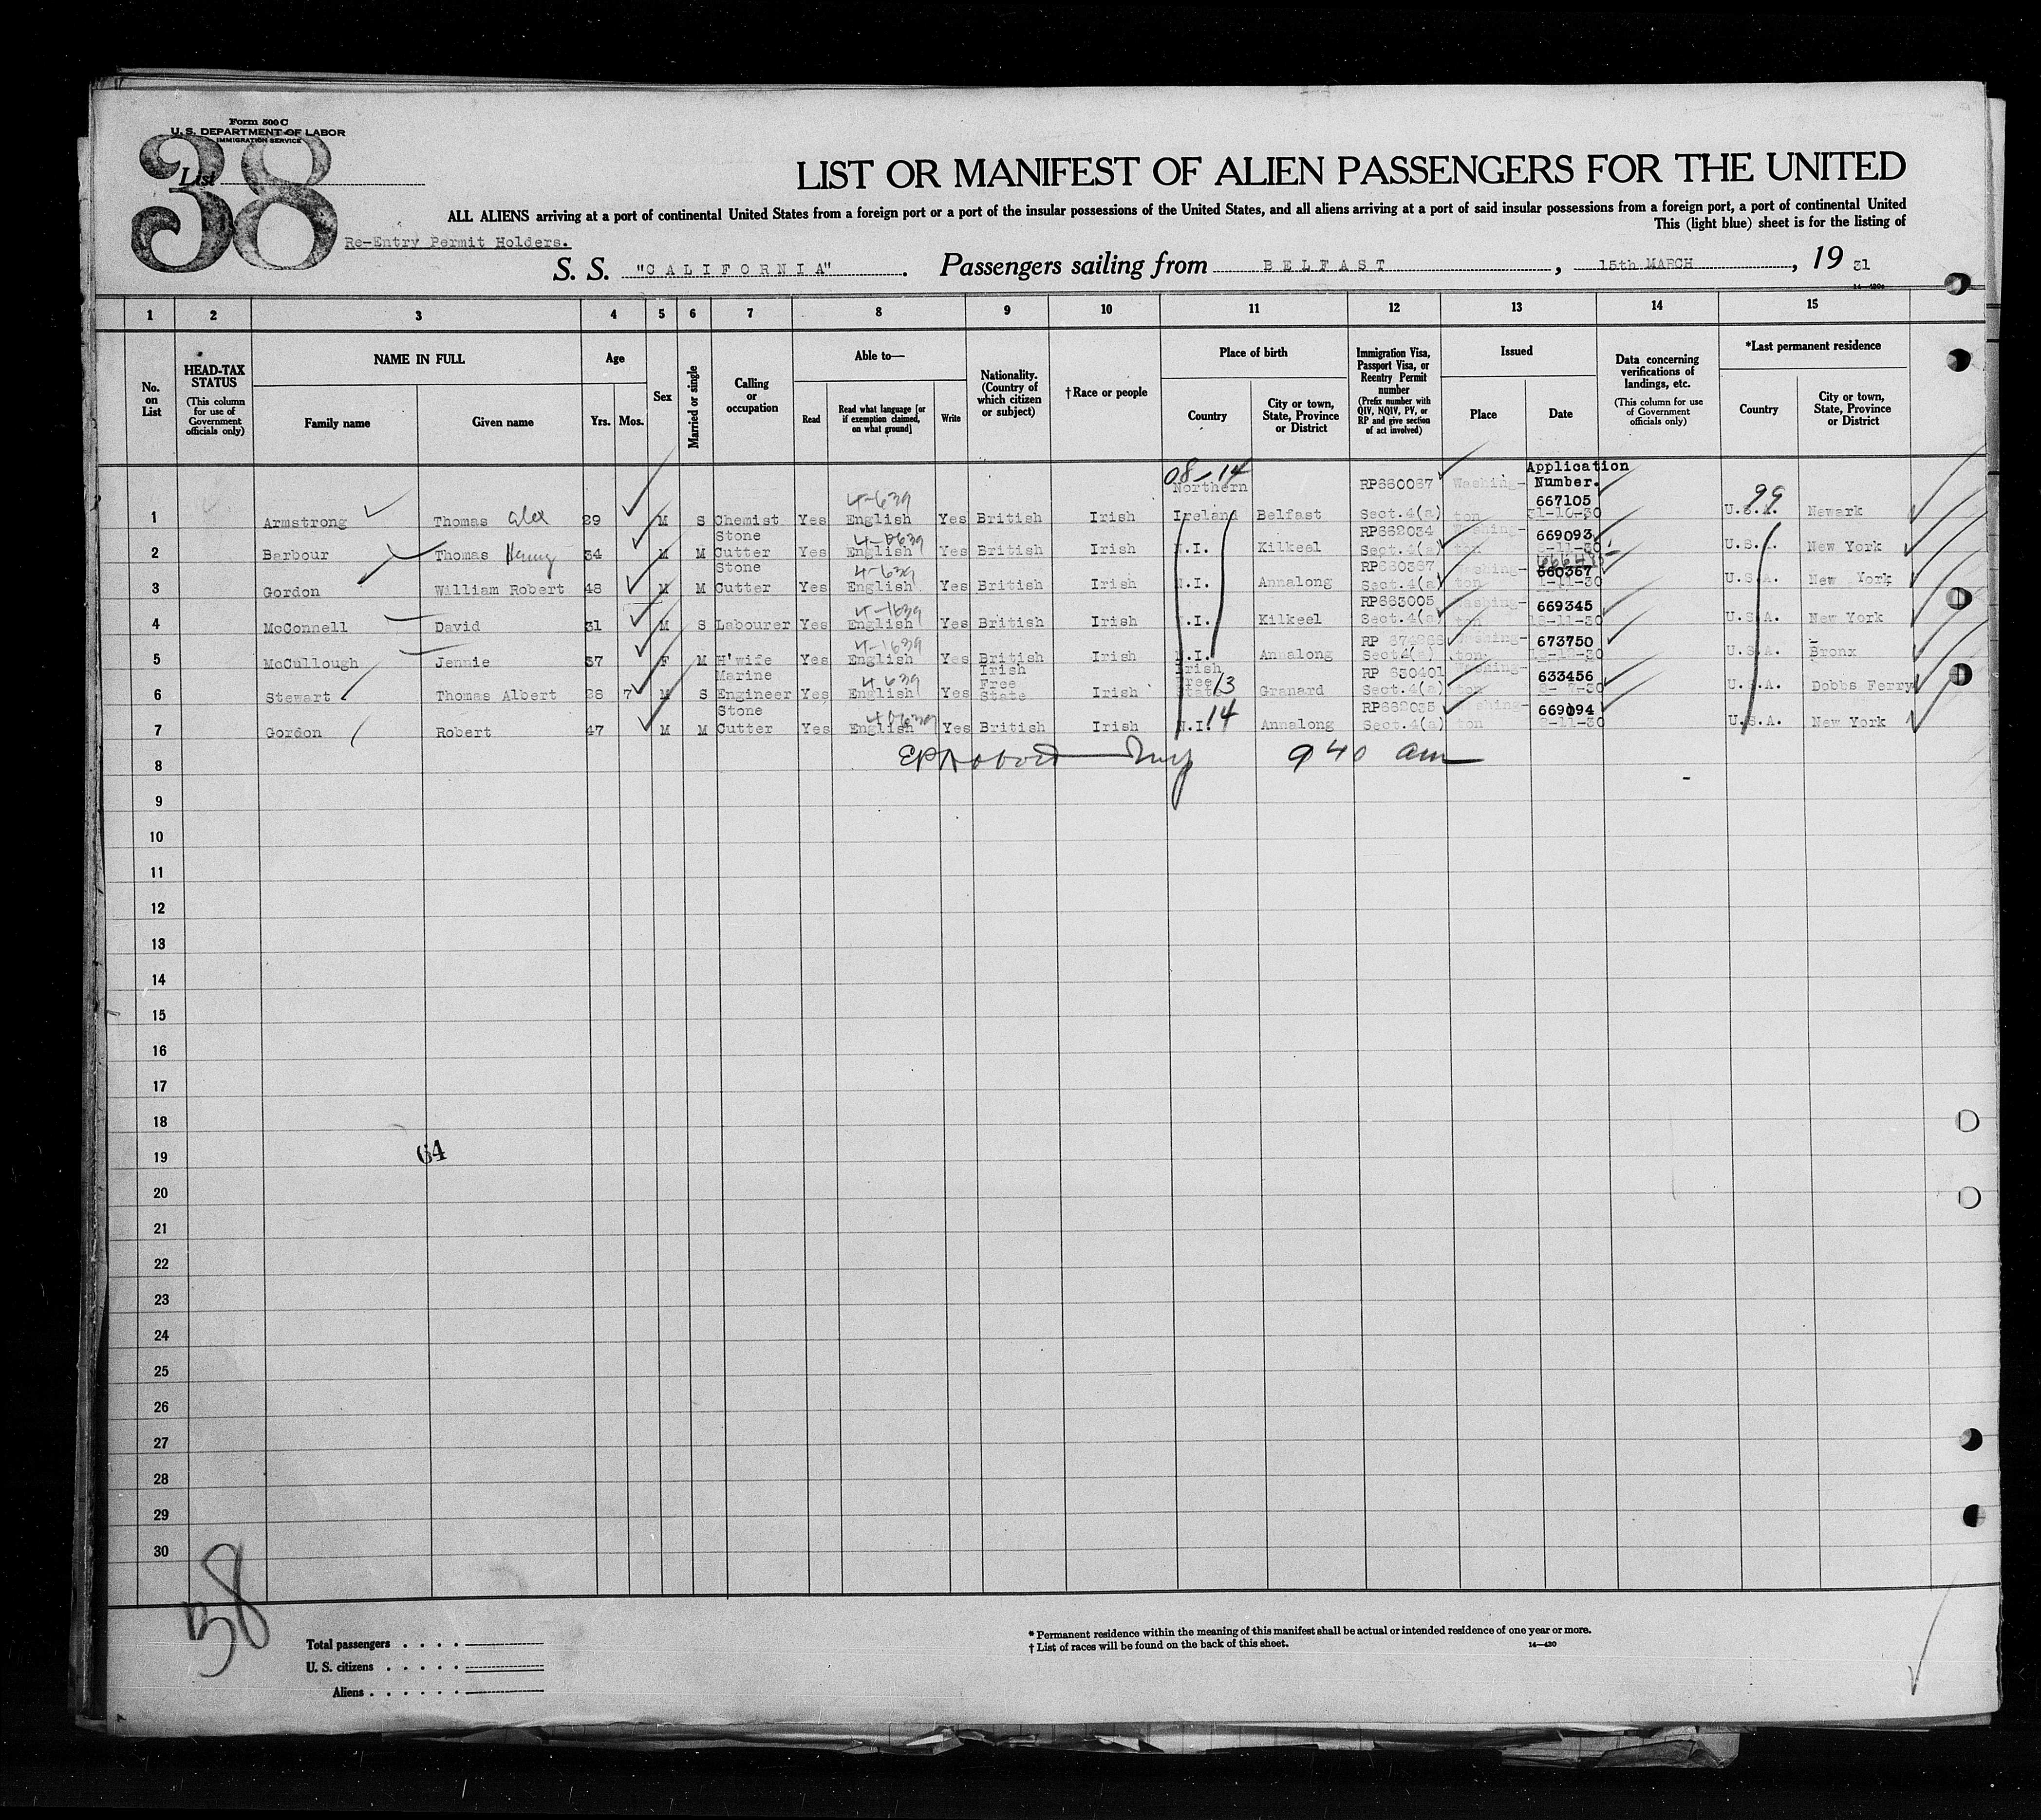 Form 500 C
U. S. DEPARTMENT OF LABOR
IMMIGRATION SERVICE
38
List
LIST OR MANIFEST OF ALIEN PASSENGERS FOR THE UNITED
ALL ALIENS arriving at a port of continental United States from a foreign port or a port of the insular possessions of the United States, and all aliens arriving at a port of said insular possessions from a foreign port, a port of continental United
This (light blue) sheet is for the listing of
Re-Entry Permit Holders.
S. S. "CALIFORNIA". Passengers sailing from BELFAST, 15th MARCH, 19 31
1 2 3 4 5 6 7 8 9 10 11 12 13 14 15
No. on List
HEAD-TAX STATUS (This column for use of Government officials only)
NAME IN FULL
Family name
Given name
Age
Yrs. Mos.
Sex
Married or single
Calling or occupation
Able to—
Read
Read what language [or if exemption claimed, on what ground]
Write
Nationality. (Country of which citizen or subject)
† Race or people
Place of birth
Country
City or town, State, Province or District
Immigration Visa, Passport Visa, or Reentry Permit number (Prefix number with QIV, NQIV, PV, or RP and give section of act involved)
Issued
Place
Date
Data concerning verifications of landings, etc. (This column for use of Government officials only)
*Last permanent residence
Country
City or town, State, Province or District
Application Number.
08-14
99
1 Armstrong Thomas Alex 29 M S Chemist Yes English 4-639 Yes British Irish Northern Ireland Belfast RP660067 Sect.4(a) Washington 667105 31-10-30 U.S.A. Newark
2 Barbour Thomas Henry 34 M M Stone Cutter Yes English Yes British Irish N.I. Kilkeel RP662034 Sect.4(a) Washington 669093 U.S.A. New York
3 Gordon William Robert 48 M M Stone Cutter Yes English 4-639 Yes British Irish N.I. Annalong RP660367 Sect.4(a) Washington 660367 U.S.A. New York
4 McConnell David 31 M S Labourer Yes English 4-1639 Yes British Irish N.I. Kilkeel RP663005 Sect.4(a) Washington 669345 U.S.A. New York
5 McCullough Jennie 37 F M H'wife Yes English 4-1639 Yes British Irish N.I. Annalong Sect.4(a) Washington 673750 U.S.A. Bronx
6 Stewart Thomas Albert 28 7 M S Marine Engineer Yes English 4-639 Yes Irish Free State Irish Irish Free State 13 Granard RP 630401 Sect.4(a) Washington 633456 U.S.A. Dobbs Ferry
7 Gordon Robert 47 M M Stone Cutter Yes English Yes British Irish N.I. 14 Annalong RP662035 Sect.4(a) Washington 669094 U.S.A. New York
8 9 40 am
9
10
11
12
13
14
15
16
17
18
19
64
20
21
22
23
24
25
26
27
28
29
30
38
Total passengers
U. S. citizens
Aliens
* Permanent residence within the meaning of this manifest shall be actual or intended residence of one year or more.
† List of races will be found on the back of this sheet.
14—420